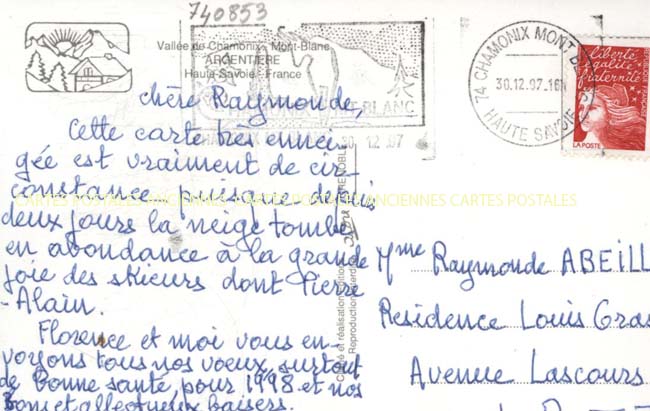 740853
Vallée de Chamonix - Mont-Blanc
ARGENTIERE
Haute-Savoie - France
74 CHAMONIX MONT B
30.12.97.16H
HAUTE SAVOIE
liberté
égalité
fraternité
LA POSTE
MONT-BLANC
30 12 97
chère Raymonde,
Cette carte très ennei
gée est vraiment de cir-
constance puisque depuis
deux jours la neige tombe
en abondance à la grande
joie des skieurs dont Pierre
-Alain.
Florence et moi vous en-
voyons tous nos voeux, surtout
de bonne santé pour 1998 et nos
bons et affectueux baisers.
CARTES POSTALES ANCIENNES CARTES POSTALES ANCIENNES CARTES POSTALES
Mme Raymonde ABEILL
Residence Louis Gras
Avenue Lascours